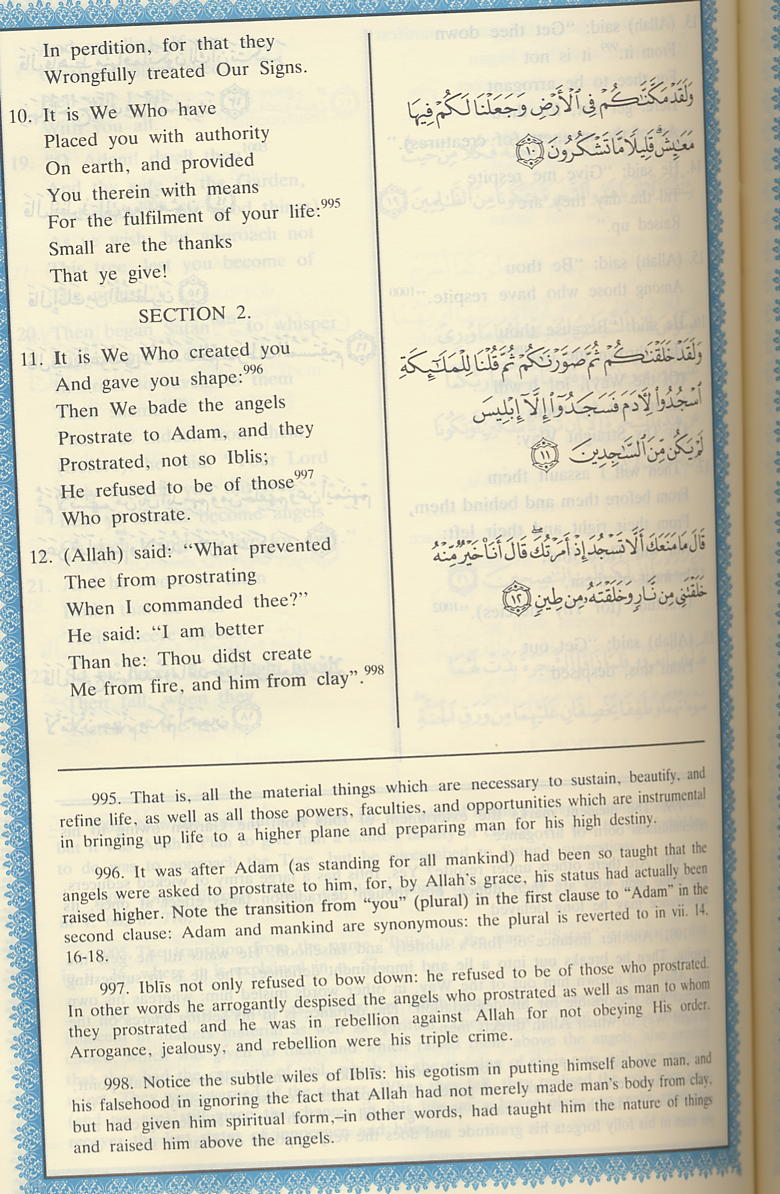 In perdition, for that they
Wrongfully treated Our Signs.
10. It is We Who have
Placed you with authority
On earth, and provided
You therein with means
For the fulfilment of your life:995
Small are the thanks
That ye give!
وَلَقَدْ مَكَّنَّٰكُمْ فِى ٱلْأَرْضِ وَجَعَلْنَا لَكُمْ فِيهَا
مَعَٰيِشَ ۗ قَلِيلًا مَّا تَشْكُرُونَ ١٠
SECTION 2.
11. It is We Who created you
And gave you shape:996
Then We bade the angels
Prostrate to Adam, and they
Prostrated, not so Iblis;
He refused to be of those997
Who prostrate.
وَلَقَدْ خَلَقْنَٰكُمْ ثُمَّ صَوَّرْنَٰكُمْ ثُمَّ قُلْنَا لِلْمَلَٰٓئِكَةِ
ٱسْجُدُوا۟ لِءَادَمَ فَسَجَدُوٓا۟ إِلَّآ إِبْلِيسَ
لَمْ يَكُن مِّنَ ٱلسَّٰجِدِينَ ١١
12. (Allah) said: “What prevented
Thee from prostrating
When I commanded thee?”
He said: “I am better
Than he: Thou didst create
Me from fire, and him from clay”.998
قَالَ مَا مَنَعَكَ أَلَّا تَسْجُدَ إِذْ أَمَرْتُكَ ۖ قَالَ أَنَا۠ خَيْرٌ مِّنْهُ
خَلَقْتَنِى مِن نَّارٍ وَخَلَقْتَهُۥ مِن طِينٍ ١٢
995. That is, all the material things which are necessary to sustain, beautify, and
refine life, as well as all those powers, faculties, and opportunities which are instrumental
in bringing up life to a higher plane and preparing man for his high destiny.
996. It was after Adam (as standing for all mankind) had been so taught that the
angels were asked to prostrate to him, for, by Allah’s grace, his status had actually been
raised higher. Note the transition from “you” (plural) in the first clause to “Adam” in the
second clause: Adam and mankind are synonymous: the plural is reverted to in vii. 14.
16-18.
997. Iblīs not only refused to bow down: he refused to be of those who prostrated.
In other words he arrogantly despised the angels who prostrated as well as man to whom
they prostrated and he was in rebellion against Allah for not obeying His order.
Arrogance, jealousy, and rebellion were his triple crime.
998. Notice the subtle wiles of Iblīs: his egotism in putting himself above man, and
his falsehood in ignoring the fact that Allah had not merely made man’s body from clay,
but had given him spiritual form,–in other words, had taught him the nature of things
and raised him above the angels.